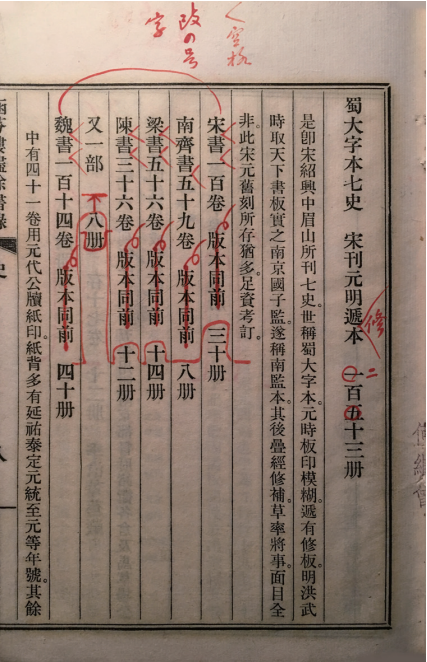 空格
改の号
字
蜀大字本七史　宋刊元明遞本　一百五十三册
修
二
是卽宋紹興中眉山所刊七史。世稱蜀大字本。元時板印模糊。遞有修板。明洪武
時取天下書板實之南京國子監。遂稱南監本。其後疊經修補。草率將事。面目全
非。此宋元舊刻所存猶多。足資考訂。
宋書一百卷　版本同前　三十册
南齊書五十九卷　版本同前　八册
梁書五十六卷　版本同前　十四册
陳書三十六卷　版本同前　十二册
又一部　八册
魏書一百十四卷　版本同前　四十册
中有四十一卷用元代公牘紙印。紙背多有延祐泰定元統至元等年號。其餘
燼餘書錄
史